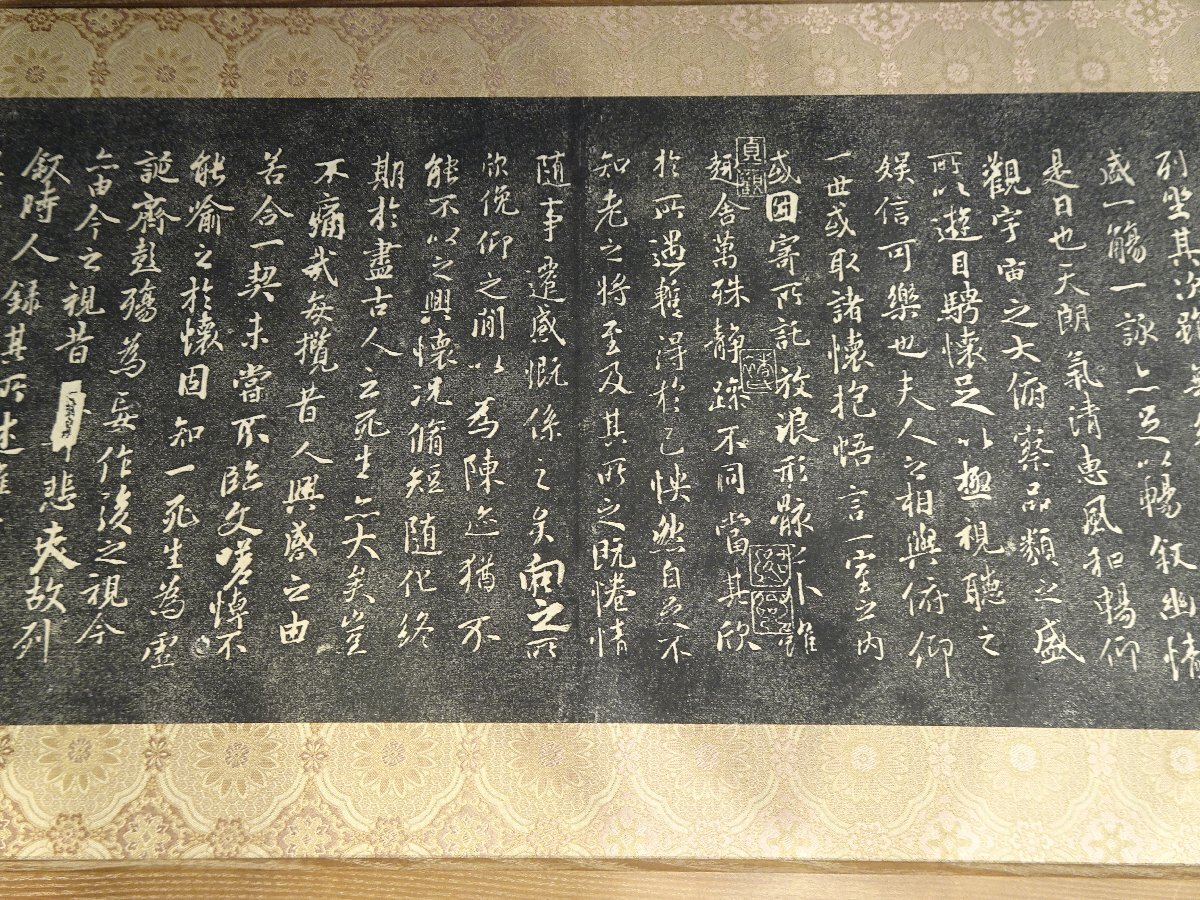 列坐其次雖無
盛一觴一詠亦足以暢叙幽情
是日也天朗氣清惠風和暢仰
觀宇宙之大俯察品類之盛
所以遊目騁懷足以極視聽之
娛信可樂也夫人之相與俯仰
一世或取諸懷抱悟言一室之内
或因寄所託放浪形骸之外雖
趣舍萬殊静躁不同當其欣
於所遇蹔得於己怏然自足不
知老之將至及其所之既惓情
随事遷感慨係之矣向之所
欣俛仰之閒以為陳迹猶不
能不以之興懷況脩短随化終
期於盡古人云死生亦大矣豈
不痛哉每攬昔人興感之由
若合一契未嘗不臨文嗟悼不
能喻之於懷固知一死生為虛
誕齊彭殤為妄作後之視今
亦由今之視昔悲夫故列
叙時人録其所述雖
貞觀